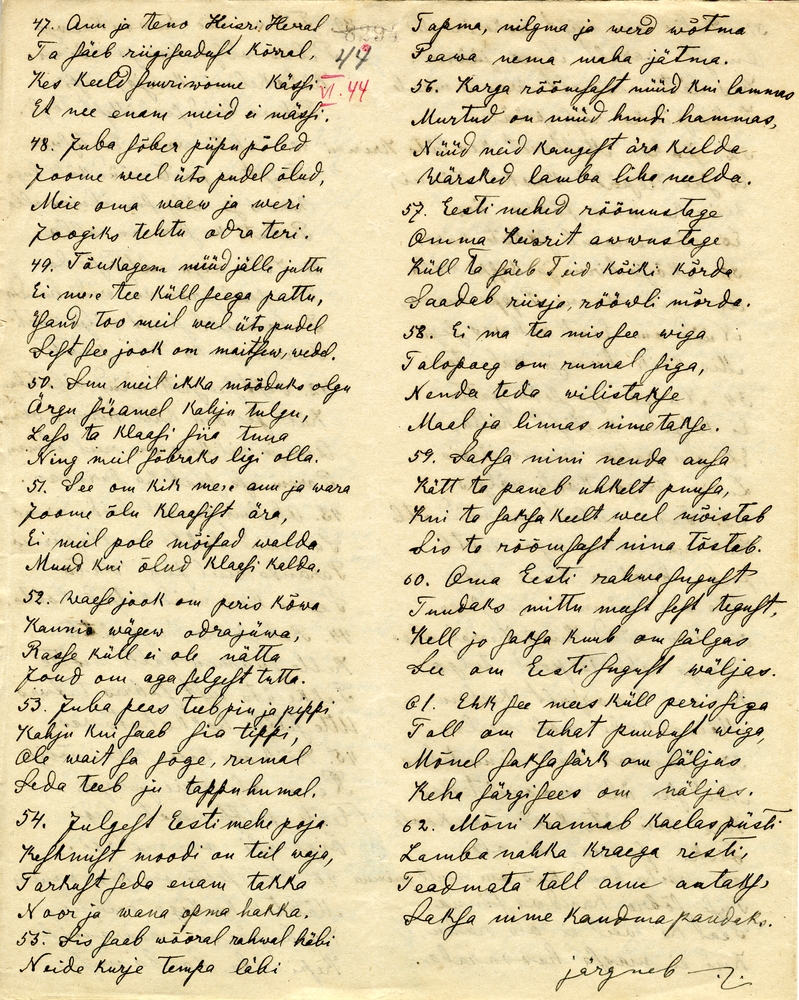 47. Ann ja Teno Keisri Herral
Ta säeb riigiseadust kõrral,
Kes keeld suuriwonne kässi
Et nee enam meid ei mässi.
44
VI. 44
48. Juba sõber piipu põled
Joome weel üts pudel õlud,
Meie oma waew ja weri
Joogiks tehtu odra teri.
49. Tõukagem nüüd jälle juttu
Ei meie tee küll seega pattu,
Ysand too meil weel üts pudel
Sest see jook om maitsew, wedel.
50. Suu meil ikka mõõduks olgu
Ärgu süamel kahju tulgu,
Lass ta klaasi siia tuua
Ning meil sõbraks ligi olla.
51. See om kik meie ann ja wara
Joome õlu klaasist ära,
Ei meil pole mõisad walda
Muud kui õlud klaasi kalda.
52. Waese jook om peris kõwa
Kannis wägew odrajüwa,
Rasse küll ei ole nätta
Jõud om aga selgest tutta.
53. Juba peas teeb piu ja pippi
Kahju kui saab sia tippi,
Ole wait sa joge, rumal
Seda teeb ju tappuhumal.
54. Julgest Eesti mehe poja
Keskmist moodi on teil waja,
Tarkust seda enam takka
Noor ja wana opma hakka.
55. Sis saab wõõral rahwal häbi
Neide kurje tempa läbi
Tapma, nilgma ja werd wõtma
Peawa nema maha jätma.
56. Karga rõõmsast nüüd kui lammas
Murtud on nüüd hundi hammas,
Nüüd neid kaugest ära keelda
Wärsked lamba liha neelda.
57. Eesti mehed rõõmustage
Omma Keisrit awwustage
Küll ta säeb Teid kõiki kõrda
Saadab riisja, rööwli mõrda.
58. Ei ma tea mis see wiga
Talopoeg om rumal siga,
Nenda teda wilistakse
Maal ja linnas nimetakse.
59. Saksa nimi nenda ausa
Kätt ta paneb uhkelt puusa,
Kui ta saksa keelt weel mõistab
Sis ta rõõmsast nina tõstab.
60. Oma Eesti rahwa sugust
Tundaks mittu must sest tegust,
Kell jo saksa kuub om sälgas
See om Eesti sugust wäljas.
61. Ehk see mees küll peris siga
Tall om tuhat puudust wiga,
Mõnel saksa särk om säljas
Keha särgi sees om näljas.
62. Mõni kannab kaelas püsti
Lamba nahka kraega risti,
Teadmata tall au antakse
Saksa nime kandma pandaks.
järgneb